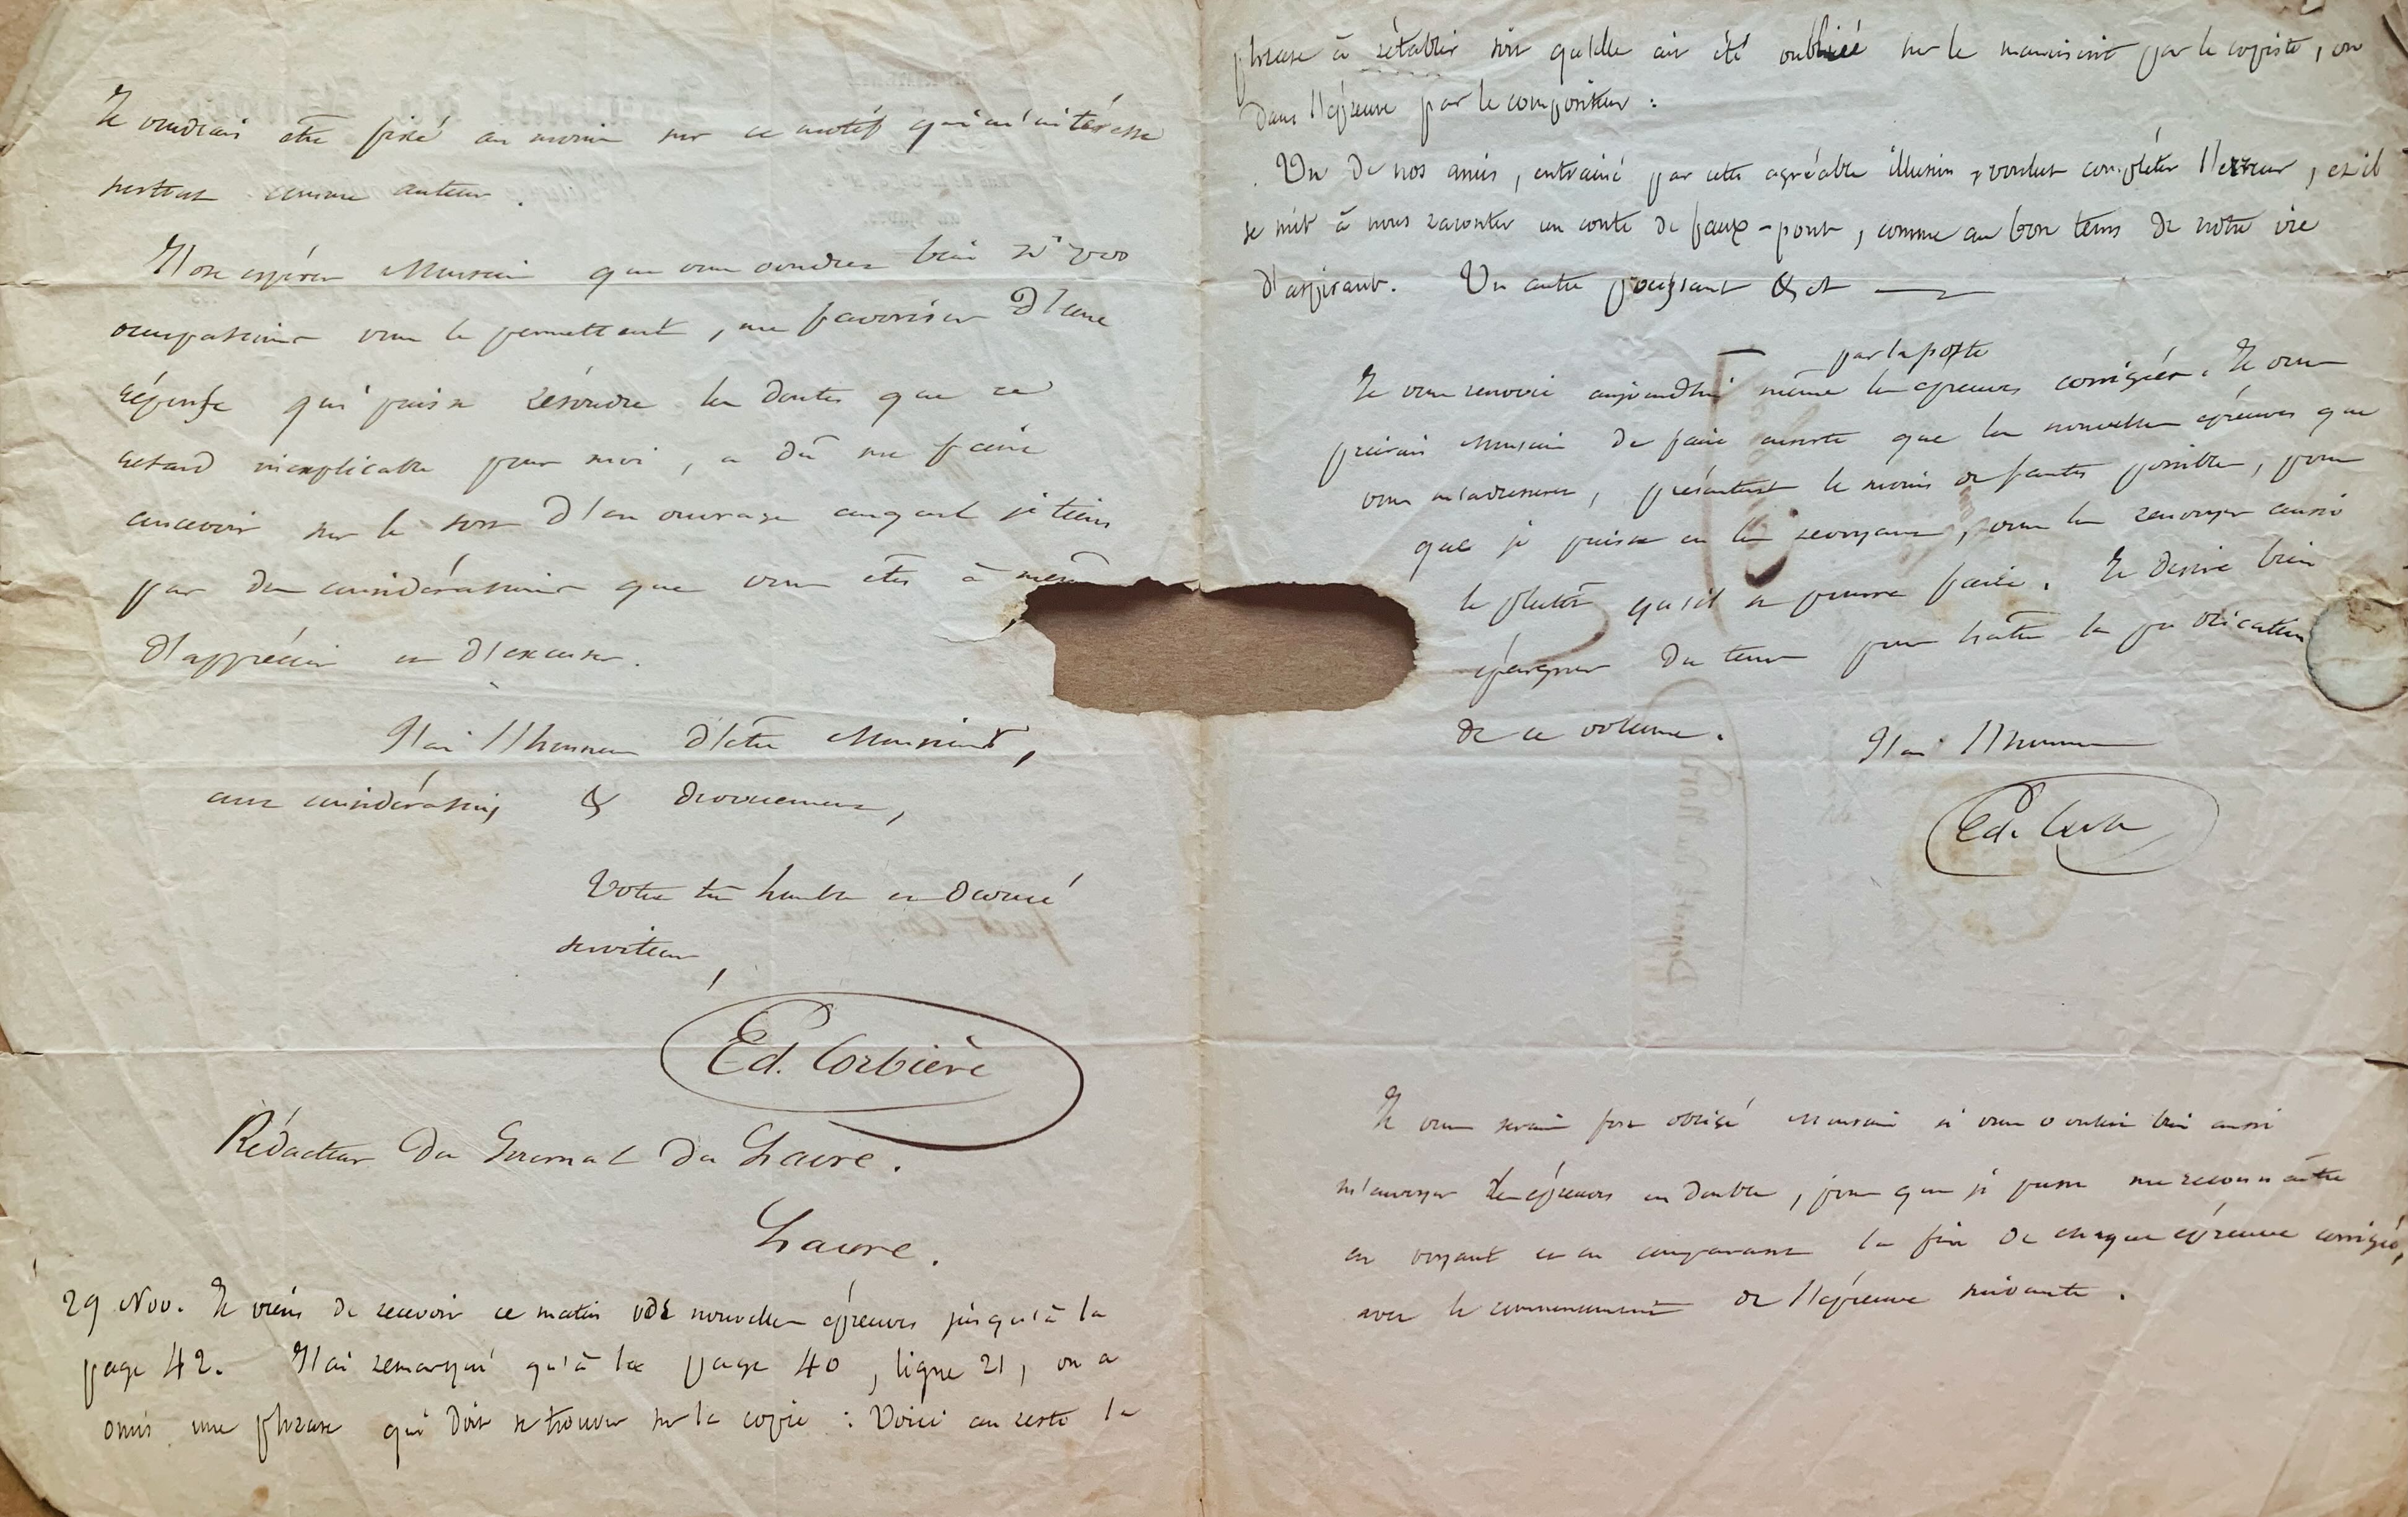 Je voudrais être fixé au moins sur ce motif qui m'intéresse
surtout comme auteur.
J'ose espérer Monsieur que vous voudrez bien si vos
occupations vous le permettent, me favoriser d'une
réponse qui puisse résoudre les doutes que ce
retard inexplicable pour moi, a dû me faire
concevoir sur le sort d'un ouvrage auquel je tiens
par des considérations que vous êtes à même
d'apprécier et d'excuser.
J'ai l'honneur d'être Monsieur,
avec considération & dévouement,
Votre très humble et dévoué
serviteur,
Ed. Corbière
Rédacteur du Journal du Havre.
Havre.
29 Nov. Je viens de recevoir ce matin vos nouvelles épreuves jusqu'à la
page 42. J'ai remarqué qu'à la page 40, ligne 21, on a
omis une phrase qui doit se trouver sur la copie : Voici au reste la
phrase à rétablir soit qu'elle ait été oubliée sur le manuscrit par le copiste, ou
dans l'épreuve par le compositeur :
Un de nos amis, entrainé par cette agréable illusion, voulut compléter l'erreur, et il
se mit à nous raconter un conte de faux-pont, comme au bon tems de notre vie
d'aspirant. Un autre poussant &ct
par la poste
Je vous renvoie aujourd'hui même les épreuves corrigées. Je vous
prierais Monsieur de faire ensorte que les nouvelles épreuves que
vous m'adresserez, présentent le moins de fautes possibles, pour
que je puisse en les revoyant, vous les renvoyer aussi
le plutôt qu'il se pourra faire. Je désire bien
épargner du tems pour hâter la publication
de ce volume. J'ai l'honneur
Ed. Corb
Je vous serais fort obligé Monsieur si vous vouliez bien aussi
m'envoyer les épreuves en double, pour que je puisse me reconnaître
en voyant et en comparant la fin de chaque épreuve corrigée,
avec le commencement de l'épreuve suivante.